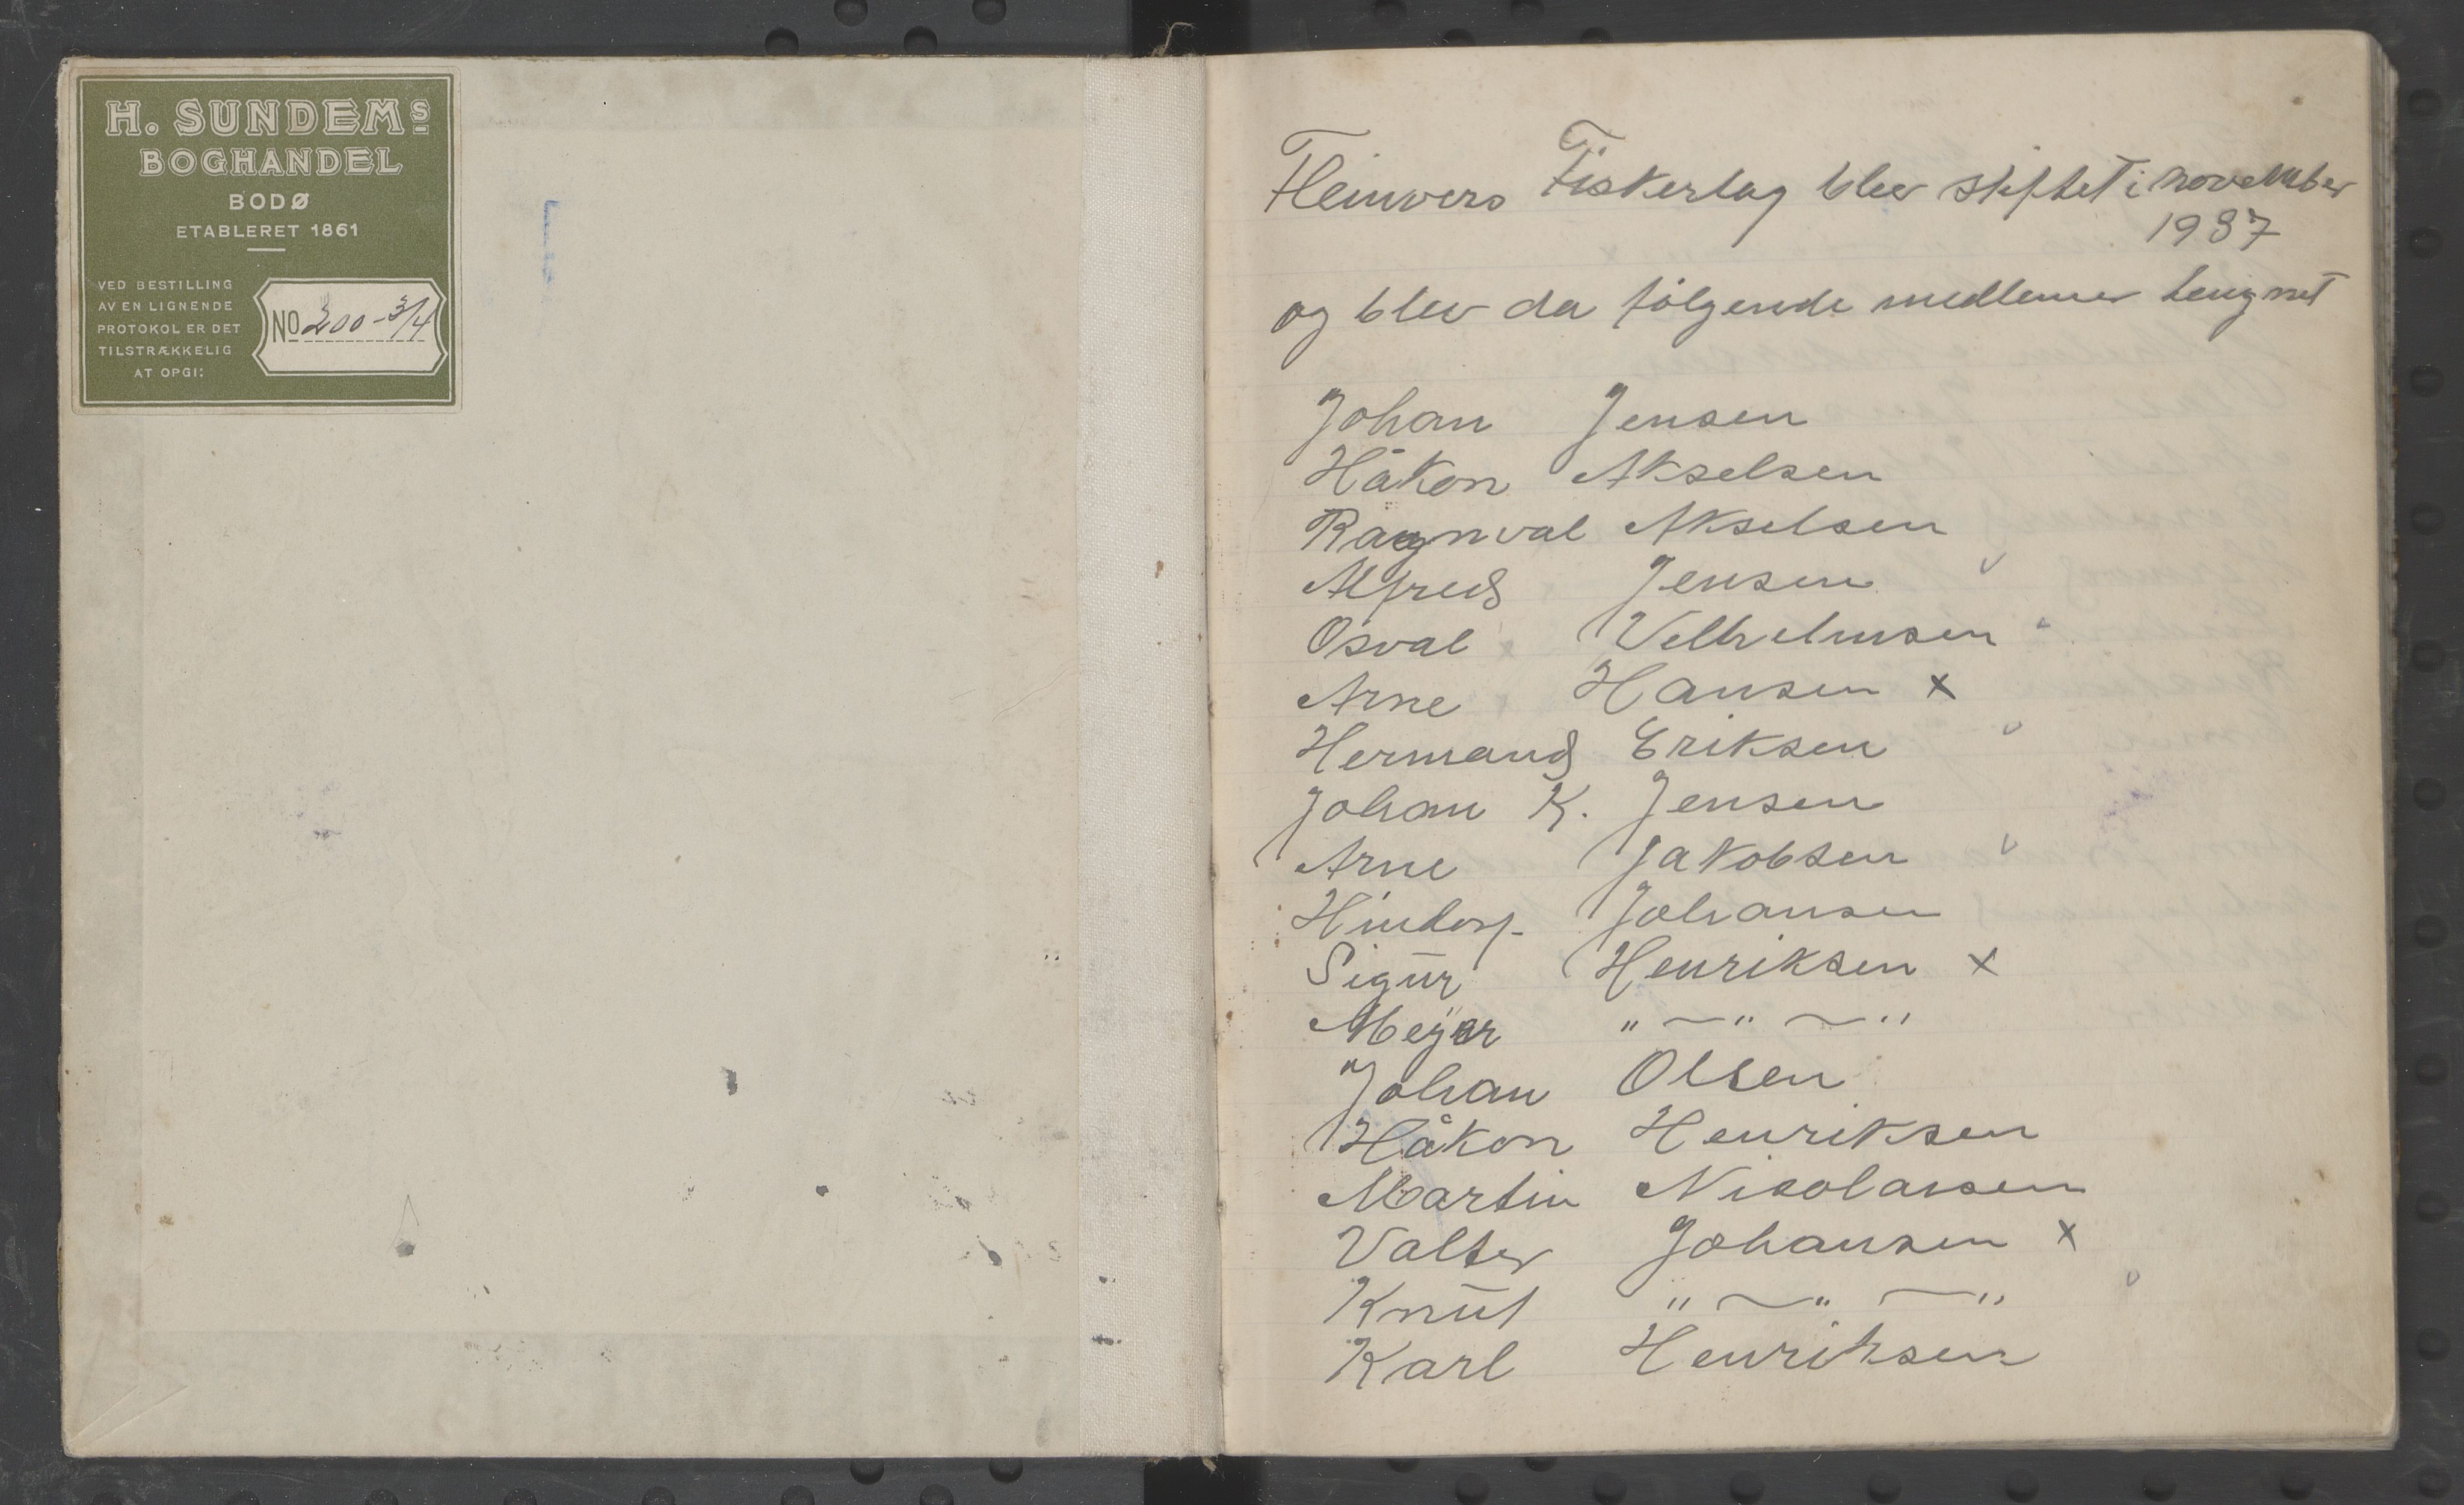 H. SUNDEMS
BOGHANDEL
BODØ
ETABLERET 1861
VED BESTILLING
AV EN LIGNENDE
PROTOKOL ER DET
TILSTRÆKKELIG
AT OPGI:
No 200-3/4
Fleinvers Fiskerlag blev stiftet i november
1937
og blev da følgende medlemer tengnet
Johan Jensen
Håkon Akselsen
Ragnval Akselsen
Alfred Jensen
Osval Velhelmsen
Arne Hansen x
Hermand Eriksen
Johan K. Jensen
Arne Jakobsen
Johansen
Sigur Henriksen x
Meyer " — " — "
Johan Olsen
Håkon Henriksen
Martin Nikolaisen
Valter Johansen x
Knut " — " — "
Karl Henriksen